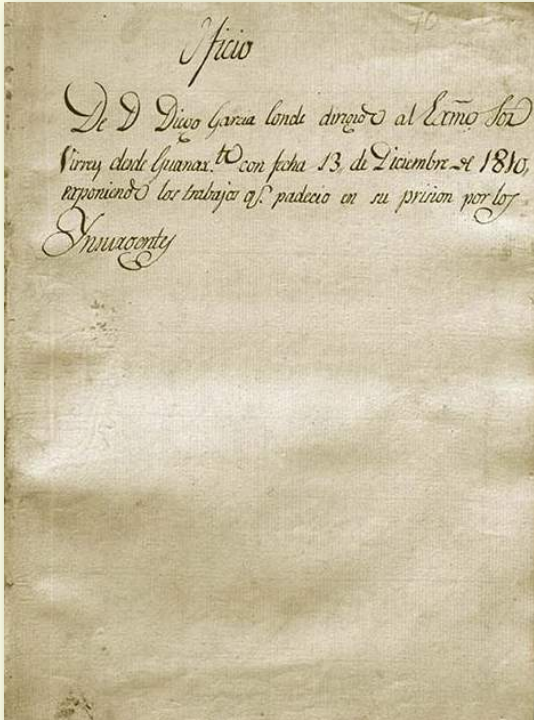 Oficio
De D Diego Garcia Conde dirigido al Exmō Sor
Virrey desde Guanax.to con fecha 13, de Diciembre de 1810,
exponiendo los trabajos qe. padecio en su prision por los
Ynsurgentes